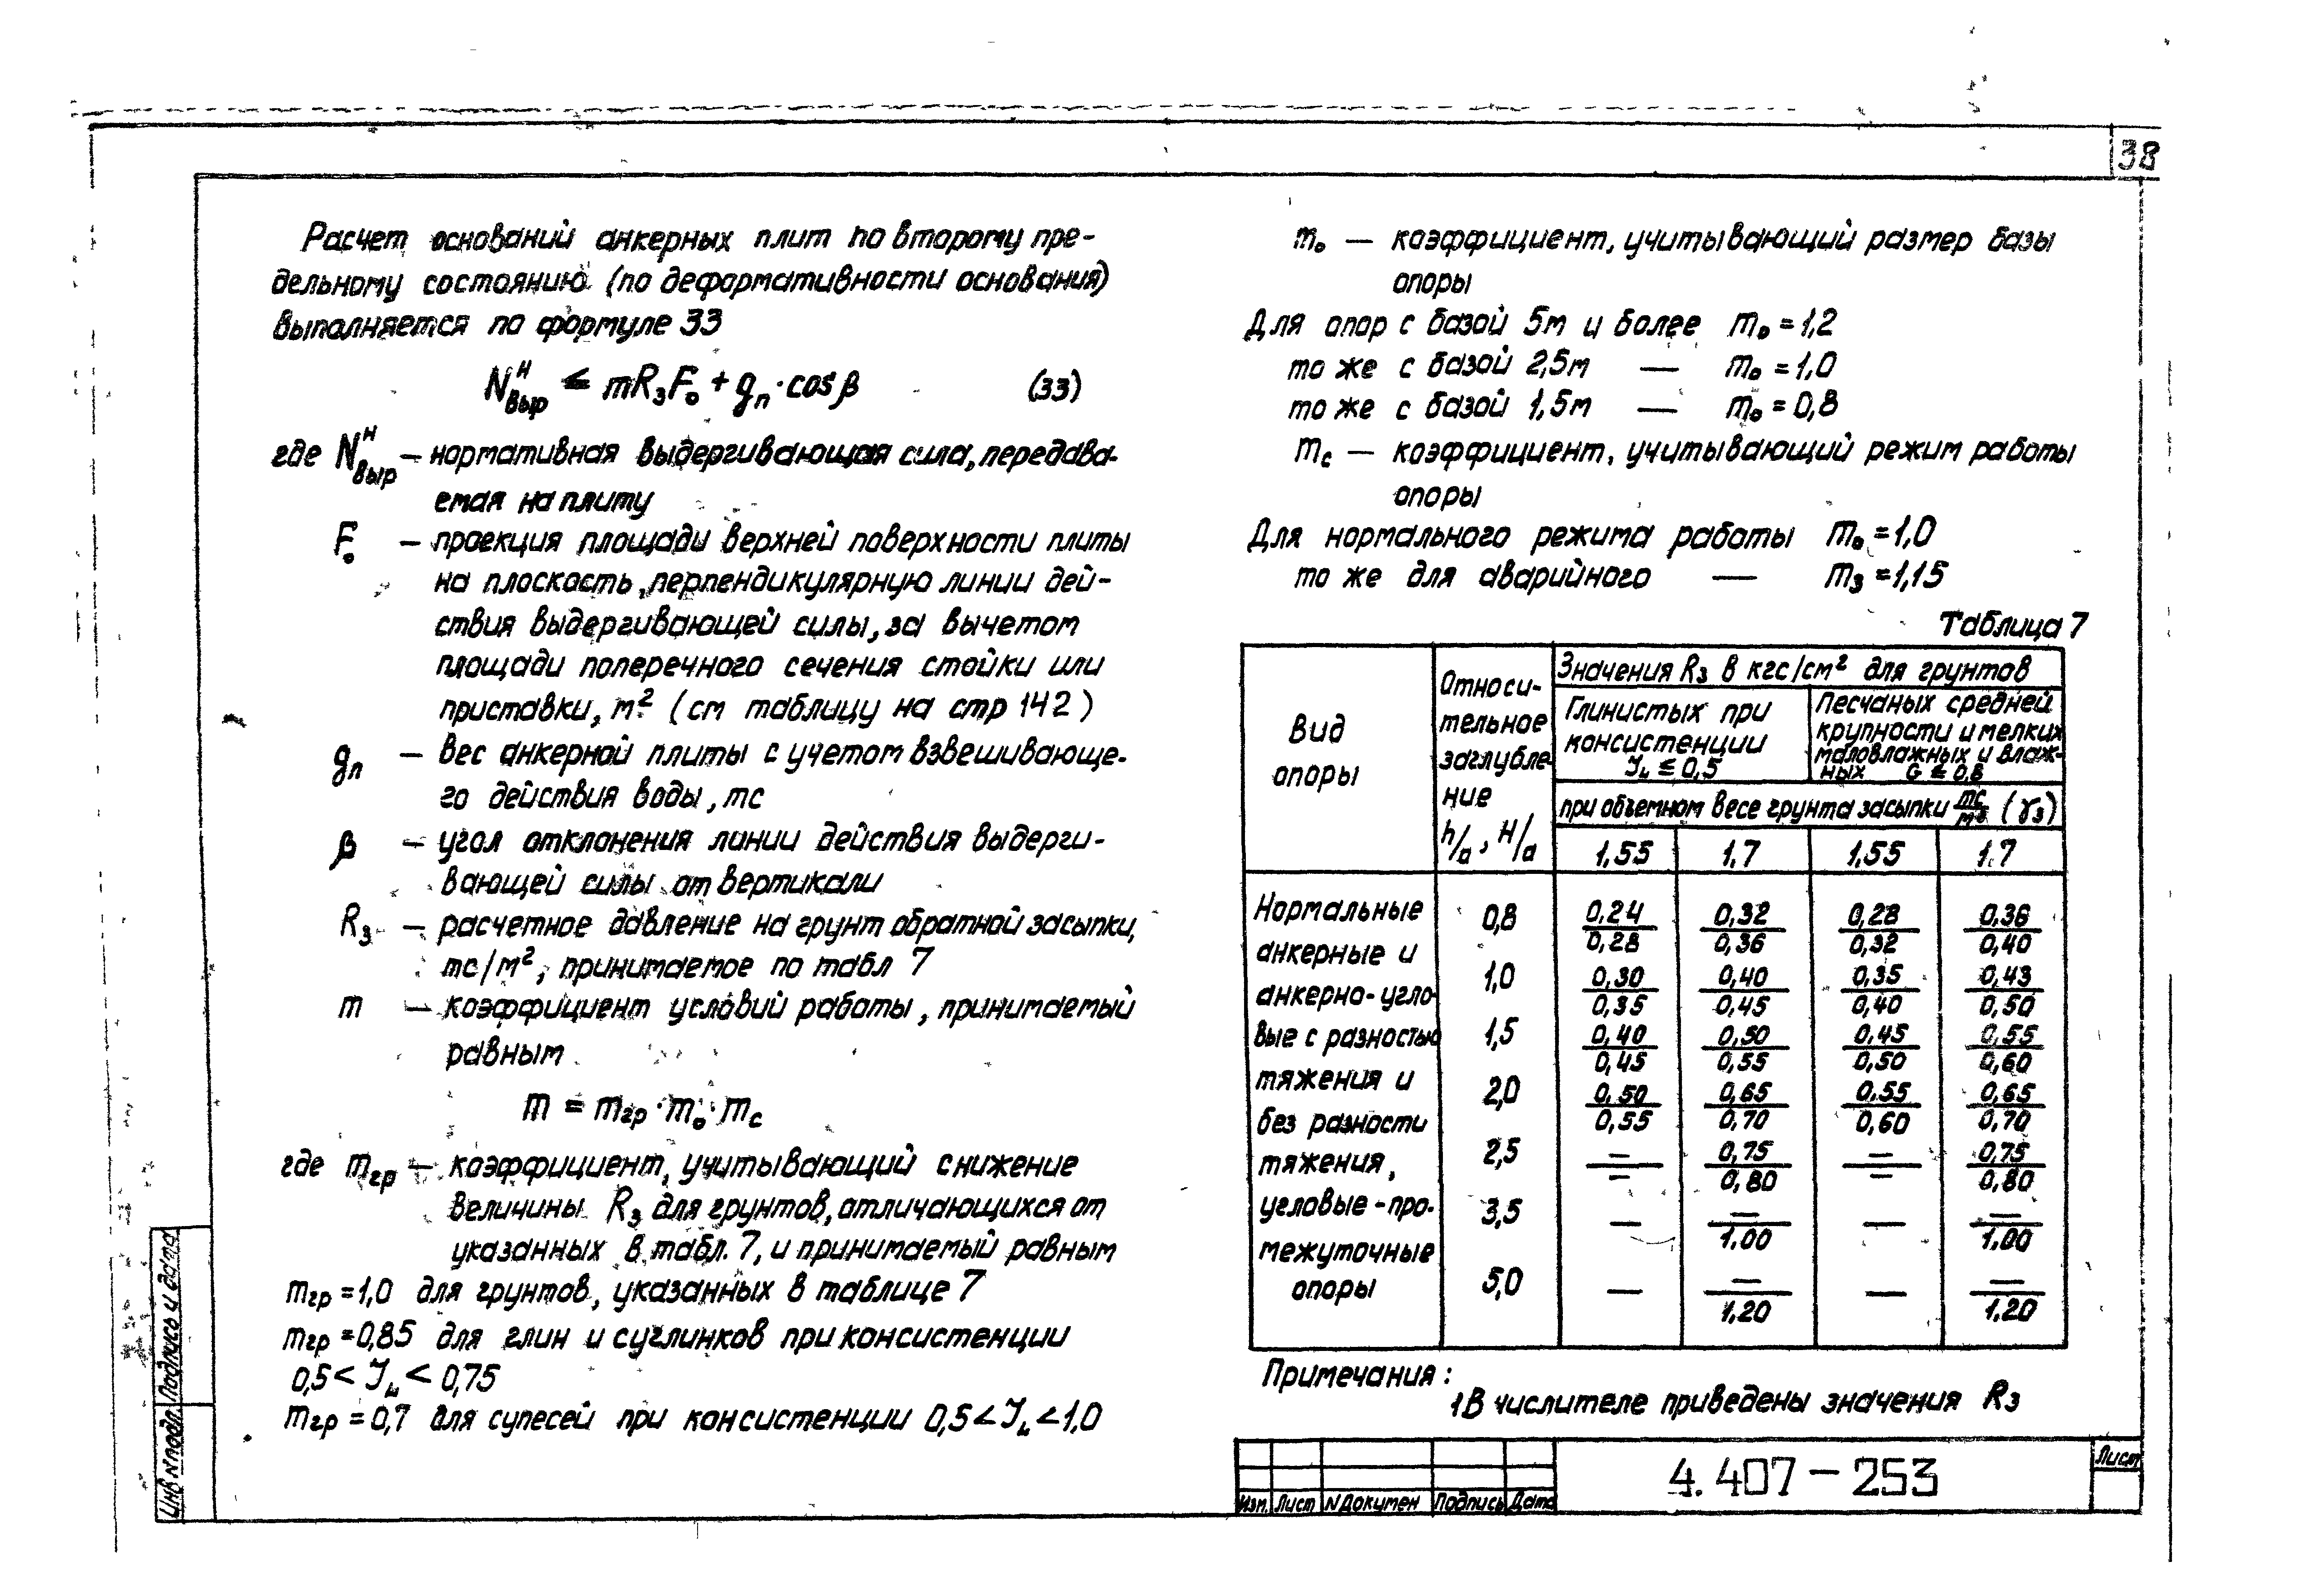 38
Расчет оснований анкерных плит по второму пре-
дельному состоянию (по деформативности основания)
выполняется по формуле 33
Nᴴвыр ≤ mRзF₀ + gп · cos β (33)
где Nᴴвыр — нормативная выдергивающая сила, передава-
емая на плиту
F₀ — проекция площади верхней поверхности плиты
на плоскость, перпендикулярную линии дей-
ствия выдергивающей силы, за вычетом
площади поперечного сечения стойки или
приставки, м² (см таблицу на стр 142)
gп — вес анкерной плиты с учетом взвешивающе-
го действия воды, тс
β — угол отклонения линии действия выдерги-
вающей силы от вертикали
Rз — расчетное давление на грунт обратной засыпки,
тс/м², принимаемое по табл 7
m — коэффициент условий работы, принимаемый
равным
m = mгр · m₀ · mс
где mгр — коэффициент, учитывающий снижение
величины Rз для грунтов, отличающихся от
указанных в табл. 7, и принимаемый равным
mгр = 1,0 для грунтов, указанных в таблице 7
mгр = 0,85 для глин и суглинков при консистенции
0,5 < JL < 0,75
mгр = 0,7 для супесей при консистенции 0,5 < JL < 1,0
m₀ — коэффициент, учитывающий размер базы
опоры
Для опор с базой 5м и более m₀ = 1,2
то же с базой 2,5м — m₀ = 1,0
то же с базой 1,5м — m₀ = 0,8
mс — коэффициент, учитывающий режим работы
опоры
Для нормального режима работы m₀ = 1,0
то же для аварийного — mз = 1,15
Таблица 7
Вид
опоры
Относи-
тельное
заглубле-
ние
h/a, H/a
Значения Rз в кгс/см² для грунтов
Глинистых при
консистенции
JL ≤ 0,5
Песчаных средней
крупности и мелких
маловлажных и влаж-
ных G ≤ 0,8
при объемном весе грунта засыпки тс/м³ (γз)
1,55 1,7 1,55 1.7
Нормальные
анкерные и
анкерно-угло-
вые с разностью
тяжения и
без разности
тяжения,
угловые-про-
межуточные
опоры
0,8 0,24/0,28 0,32/0,36 0,28/0,32 0,36/0,40
1,0 0,30/0,35 0,40/0,45 0,35/0,40 0,43/0,50
1,5 0,40/0,45 0,50/0,55 0,45/0,50 0,55/0,60
2,0 0,50/0,55 0,65/0,70 0.55/0,60 0,65/0,70
2,5 —/— 0,75/0,80 —/— 0,75/0,80
3,5 — —/1.00 — —/1.00
5,0 — —/1.20 — —/1.20
Примечания:
1 В числителе приведены значения Rз
Изм. Лист N Докумен Подпись Дата
4.407-253
Лист
Инв N подл. Подпись и дата